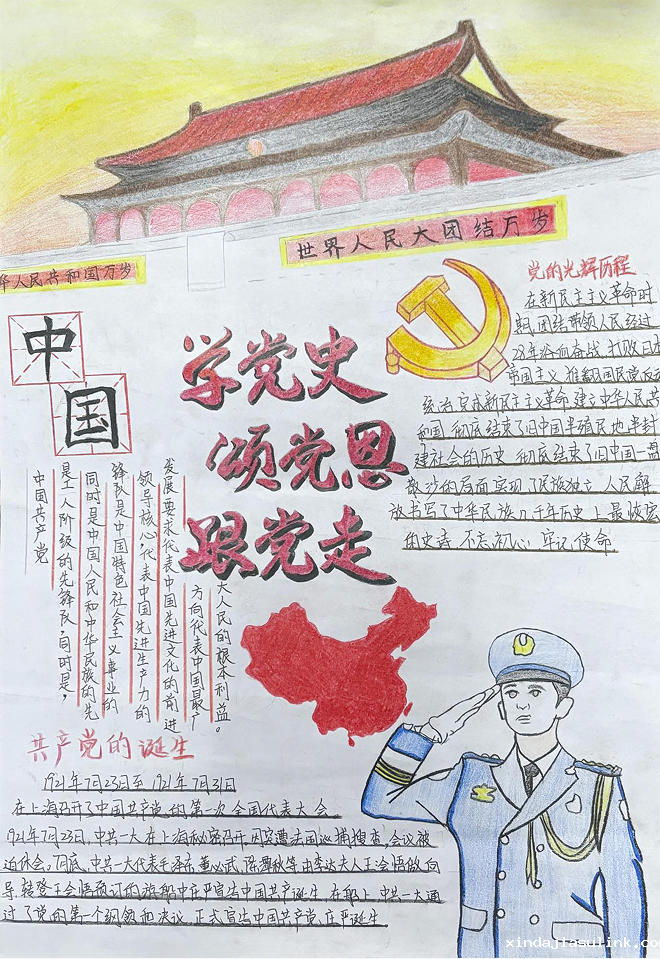 世界人民大团结万岁
华人民共和国万岁
中
国
学党史
颂党恩
跟党走
党的光辉历程
在新民主主义革命时
期,团结带领人民经过
28年浴血奋战,打败日本
帝国主义,推翻国民党反动
统治,完成新民主主义革命,建立中华人民共
和国,彻底结束了旧中国半殖民地半封
建社会的历史,彻底结束了旧中国一盘
散沙的局面,实现了民族独立、人民解
放书写了中华民族几千年历史上最恢宏
的史诗,不忘初心,牢记使命
中国共产党
是工人阶级的先锋队,同时是,
同时是中国人民和中华民族的先
锋队是中国特色社会主义事业的
领导核心代表中国先进生产力的
发展要求代表中国先进文化的前进
方向代表中国最广
大人民的根本利益。
共产党的诞生
1921年7月23日至1921年7月31日
在上海召开了中国共产党的第一次全国代表大会
1921年7月23日,中共一大在上海秘密召开,因突遭法国巡捕搜查,会议被
迫休会。7月底,中共一大代表毛泽东、董必武、陈潭秋等由李达夫人王会悟做向
导,转登王会悟预订的游船中庄严宣告中国共产诞生,在船上中共一大通
过了党的第一个纲领和决议,正式宣告中国共产党庄严诞生
xindajiasulink.com